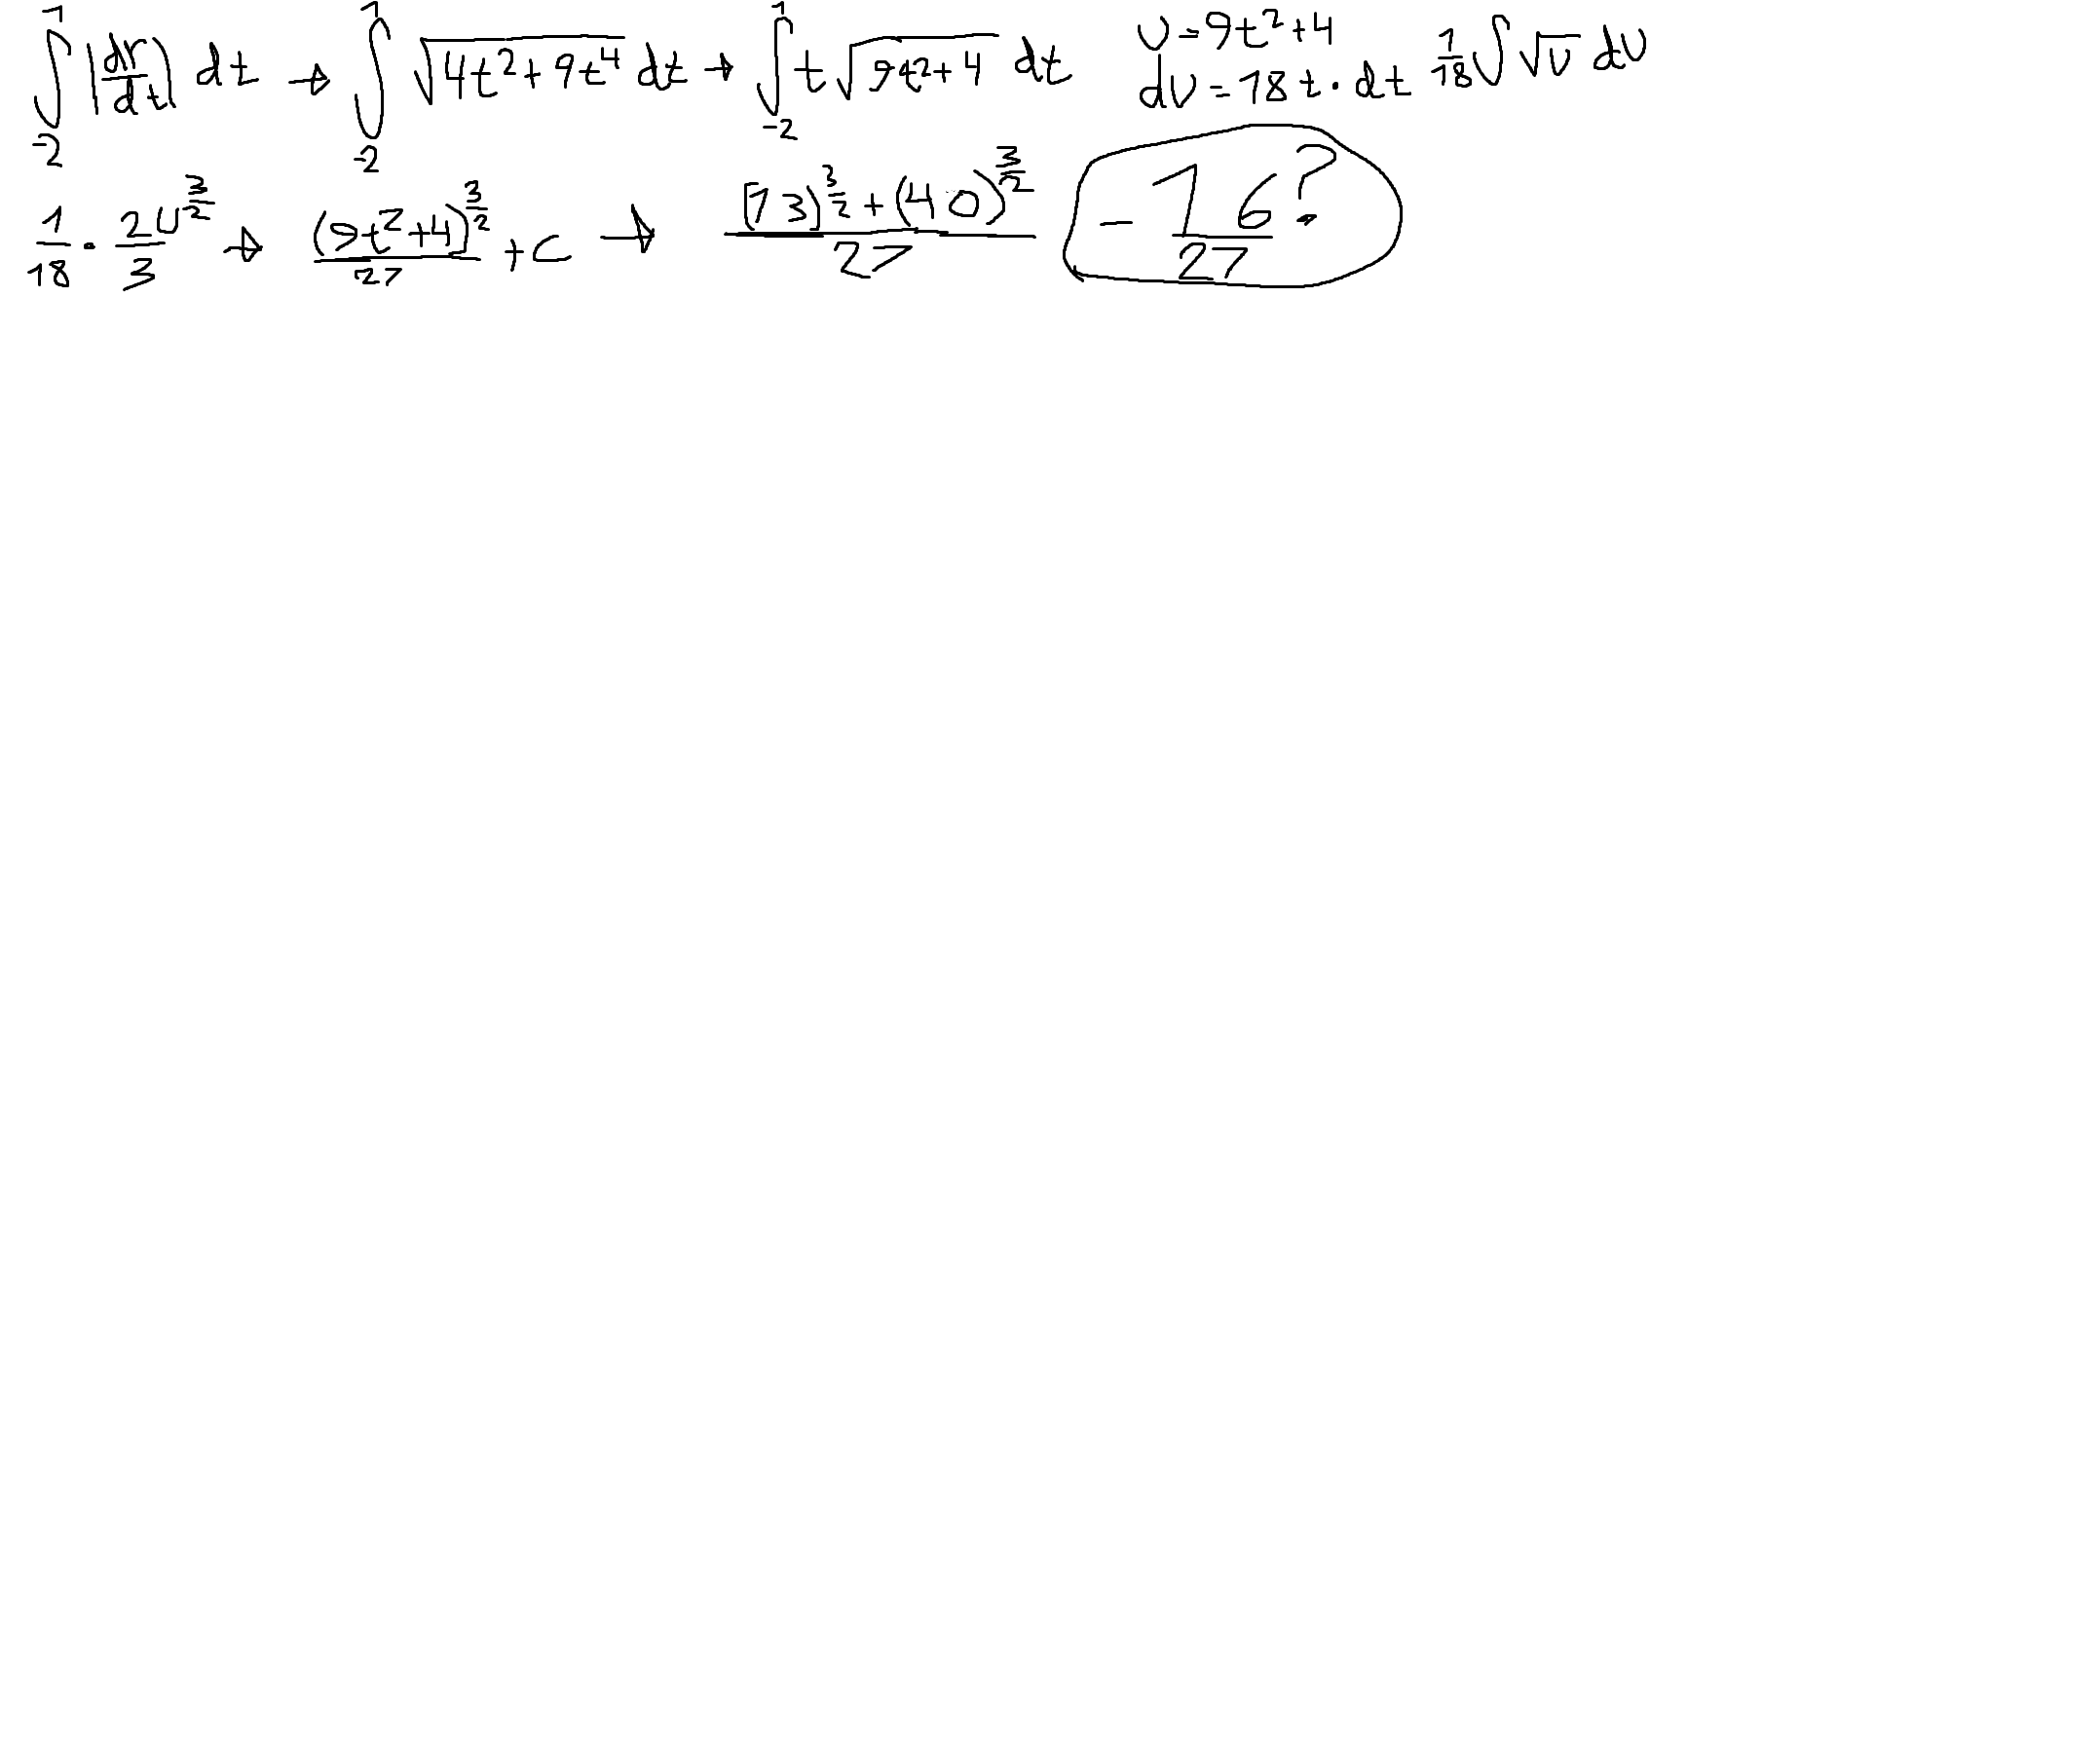 ∫_{-2}^{1} |dr/dt| dt → ∫_{-2}^{1} √(4t²+9t⁴) dt → ∫_{-2}^{1} t√(9t²+4) dt U=9t²+4 dU=18t·dt 1/18 ∫√U dU
1/18 · 2U^{3/2}/3 → (9t²+4)^{3/2}/27 + C → ((13)^{3/2}+(40)^{3/2})/27 -16/27?